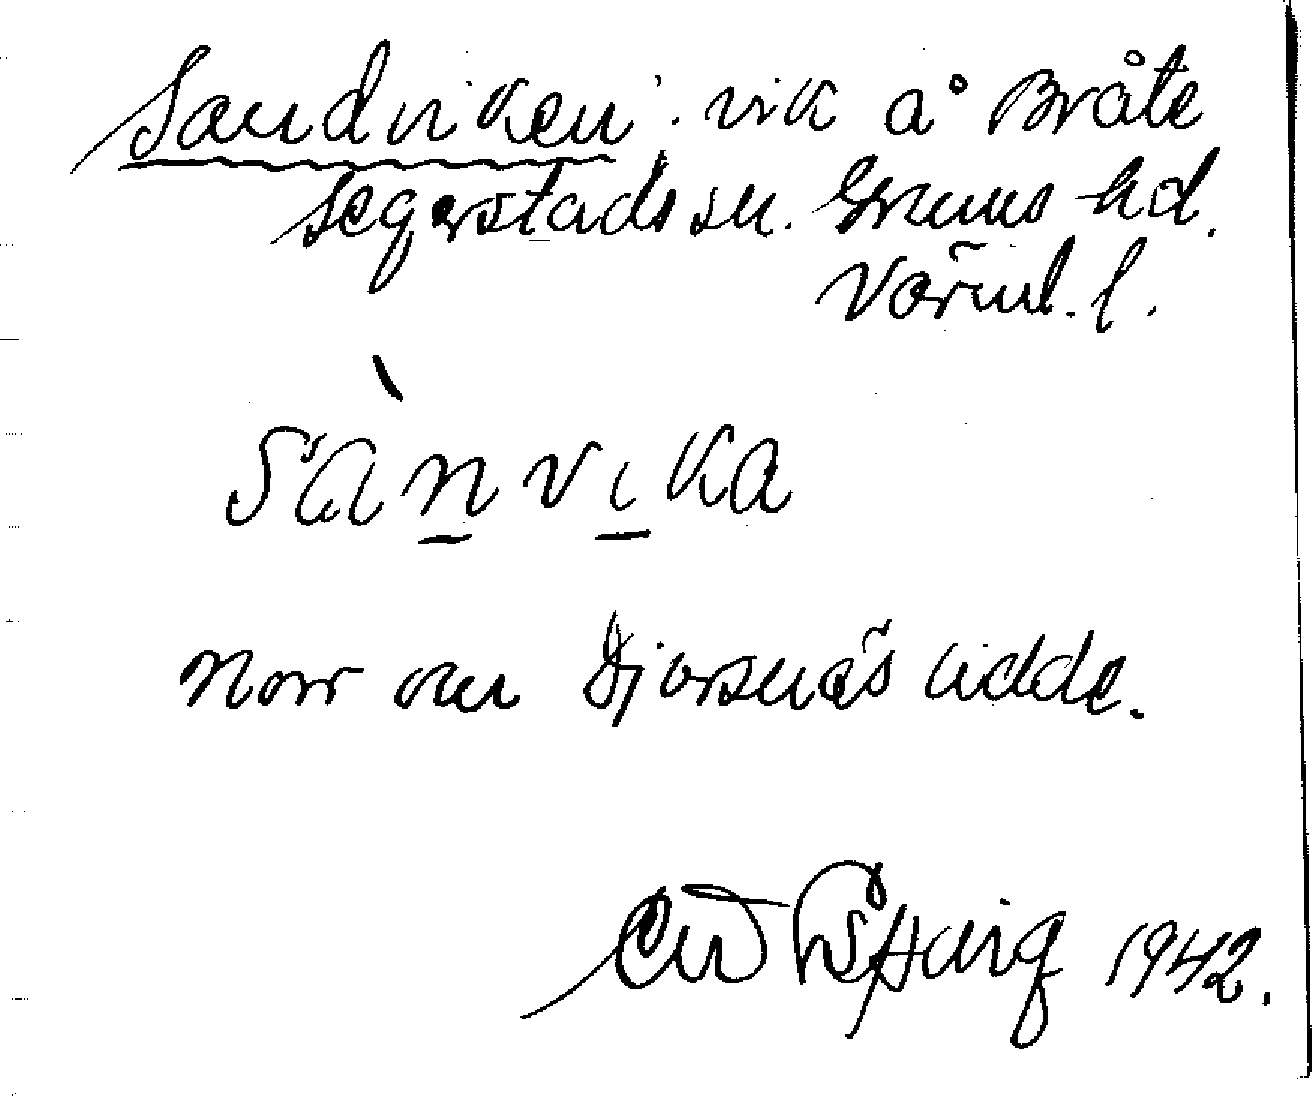 Sandviken. vik å Bråte
Segerstads sn. Grums hd.
Värml. l.
sànvika
Norr om Djorsnäs udde.
1942.